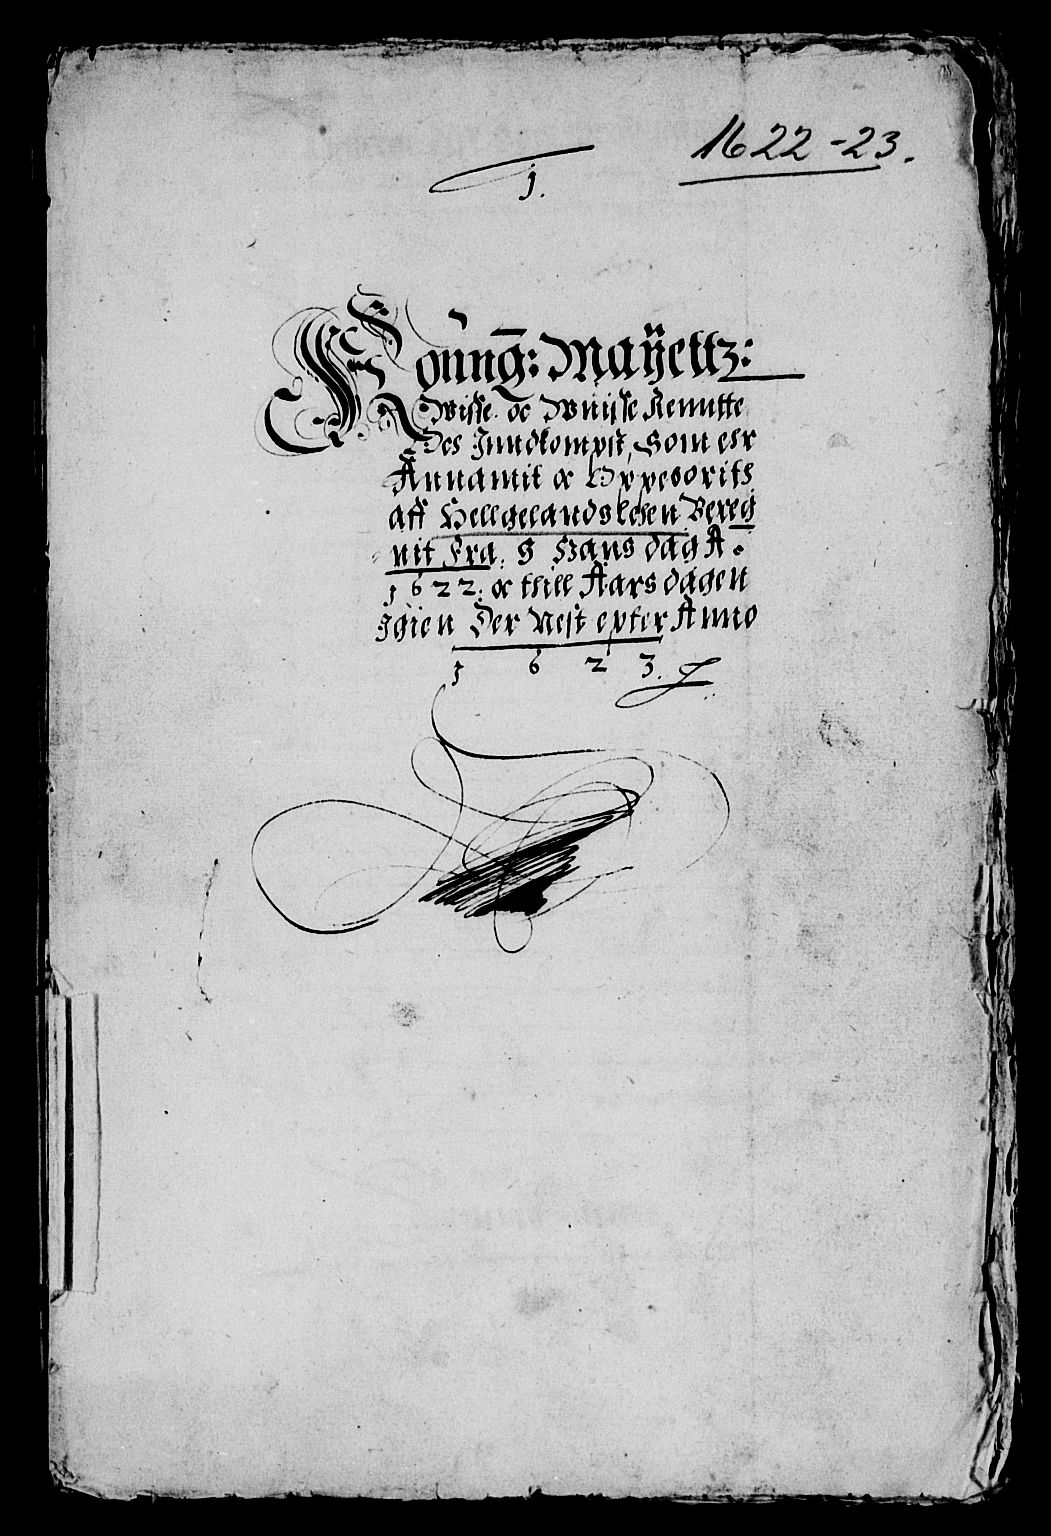 1622-23.
1.
Koning: Mayettz:
Wisse oc Wuisse Renntte
Des Inndkompst, Som ehr
Annamit oc Oppeboritt
aff Hellgelandslehen Bereg
nit Fra S Hans dag A°
1622: oc thill Aars dagen
Igien Der Nest epter Anno
1 6 2 3.